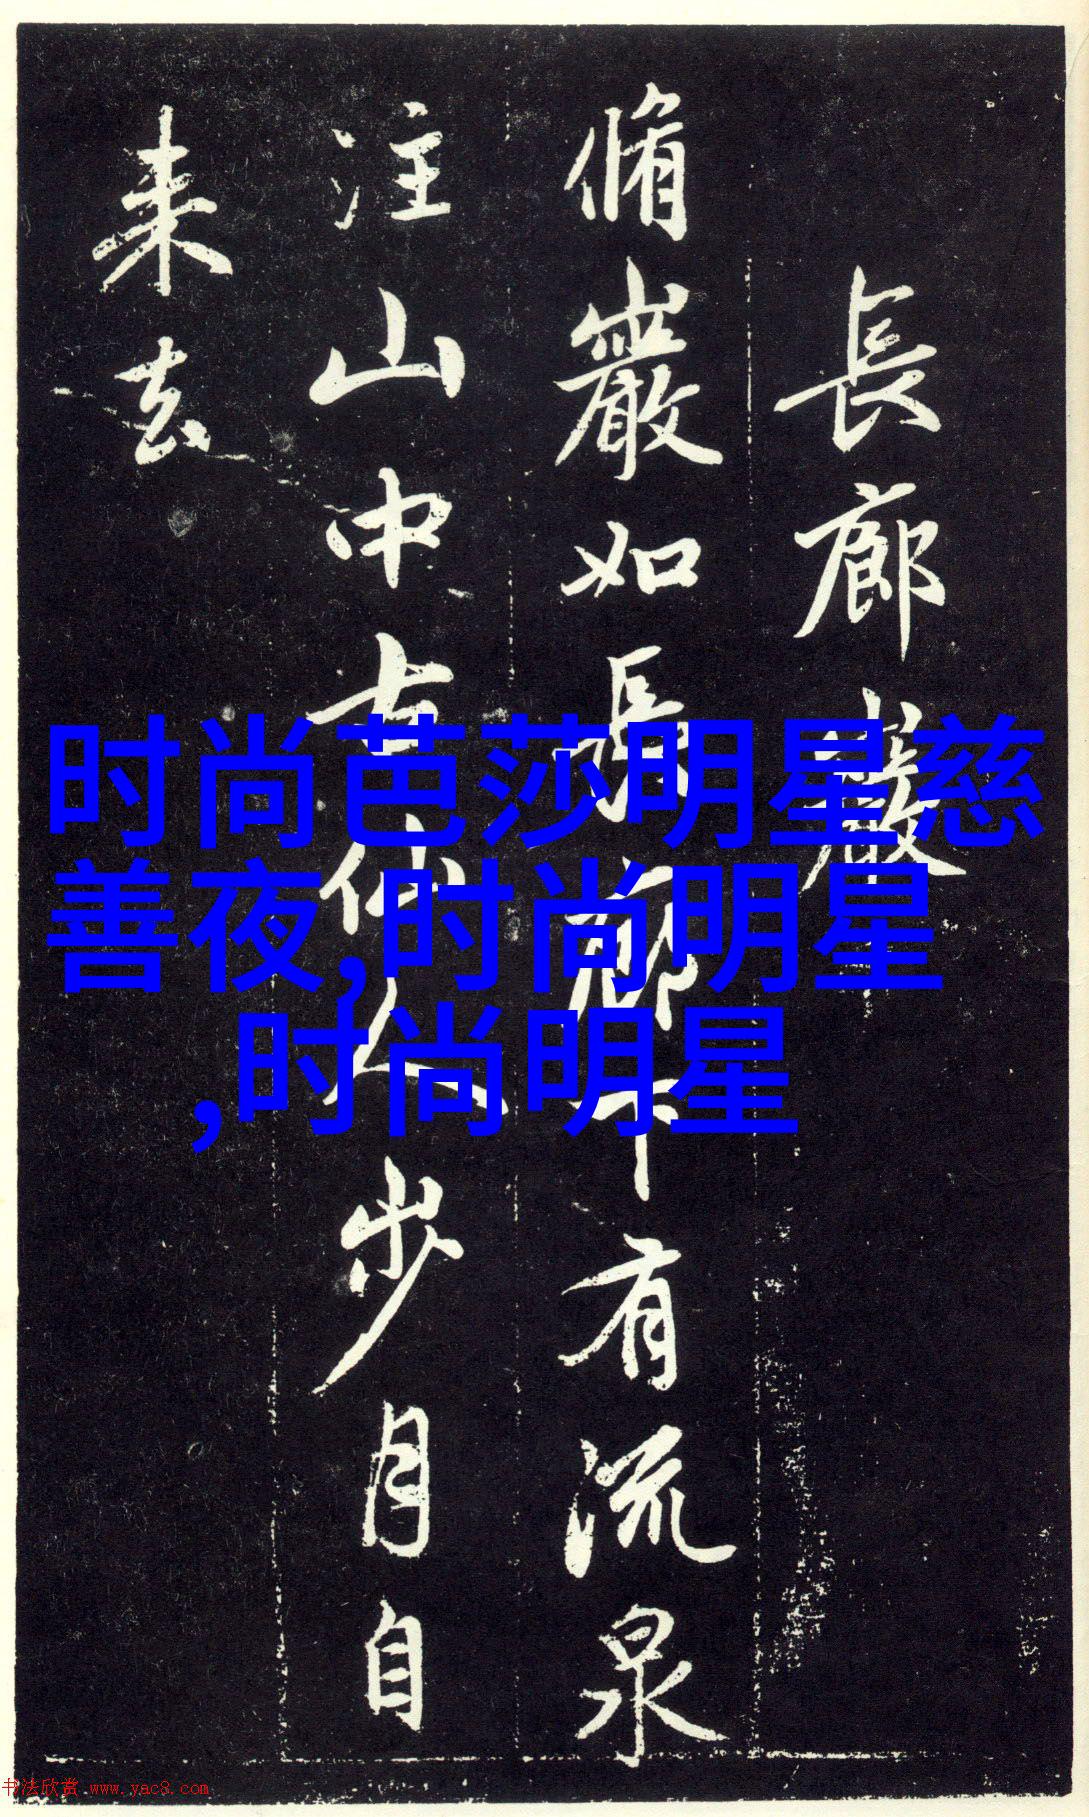 長廊巖
脩巖如長廊下有流泉
注山中古仙人步月自
来去
时尚芭莎明星慈
善夜,时尚明星
,时尚明星
书法欣赏 www.yac8.com